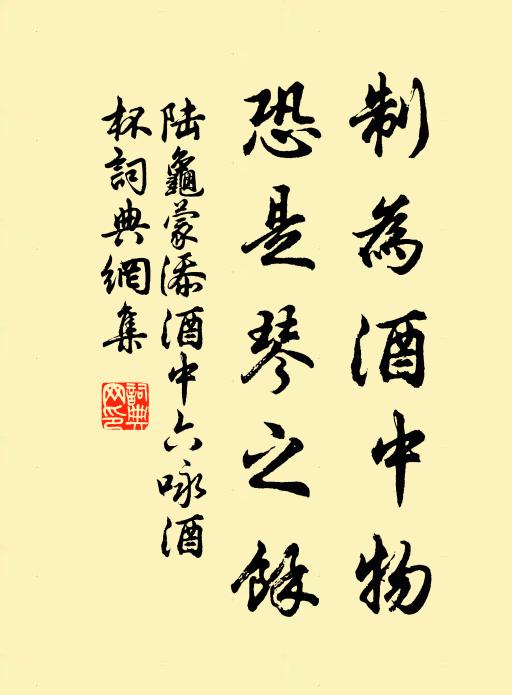 制為酒中物
恐是琴之餘
陆龜蒙添酒中六咏酒
杯詞典網集
詞典
网印